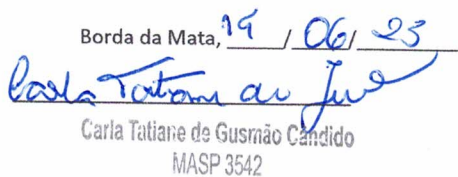 Borda da Mata, 19 / 06 / 23
Carla Tatiane de
Carla Tatiane de Gusmão Cândido
MASP 3542